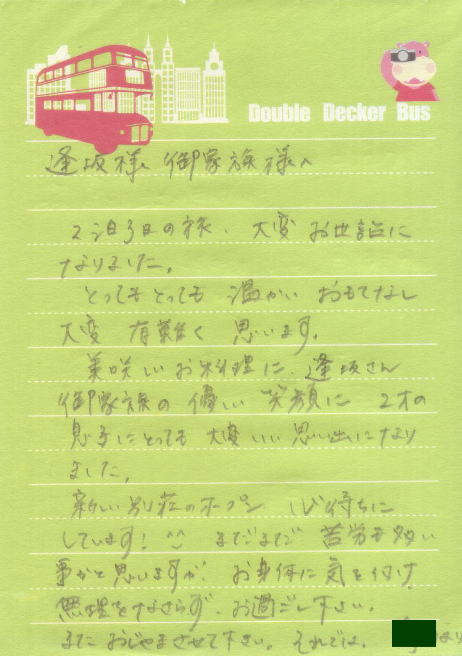 Double Decker Bus
逢坂様 御家族様へ
2泊3日の旅、大変お世話に
なりました。
とってもとっても 温かい おもてなし
大変 有難く 思います。
美味しいお料理に、逢坂さん
御家族の 優しい 笑顔に 2才の
息子にとっても 大変いい思い出になり
ました。
新しい別荘のオープン 心待ちに
しています! ^^ まだまだ 苦労も多い
事かと思いますが、お身体に 気を付け
無理をなさらず、お過ごし下さい。
また おじゃまさせて下さい。それでは、